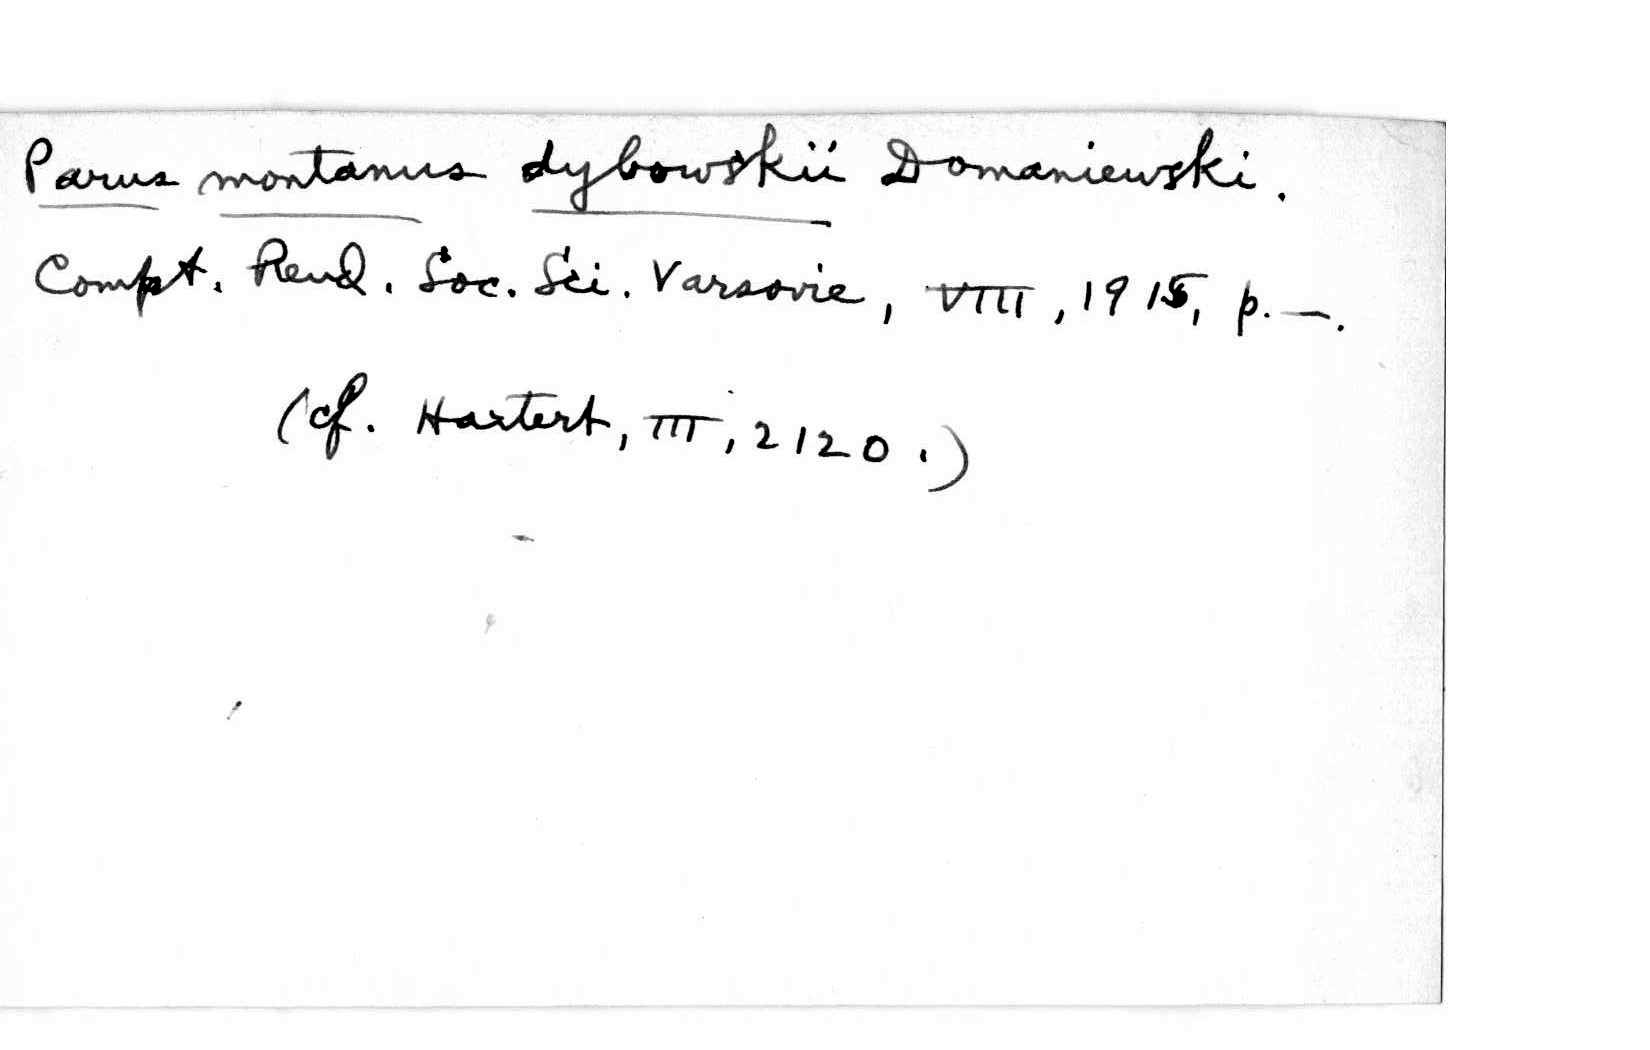 Parus montanus dybowskii Domaniewski.
Compt. Rend. Soc. Sci. Varsovie, VIII, 1915, p. —.
(cf. Hartert, III, 2120.)